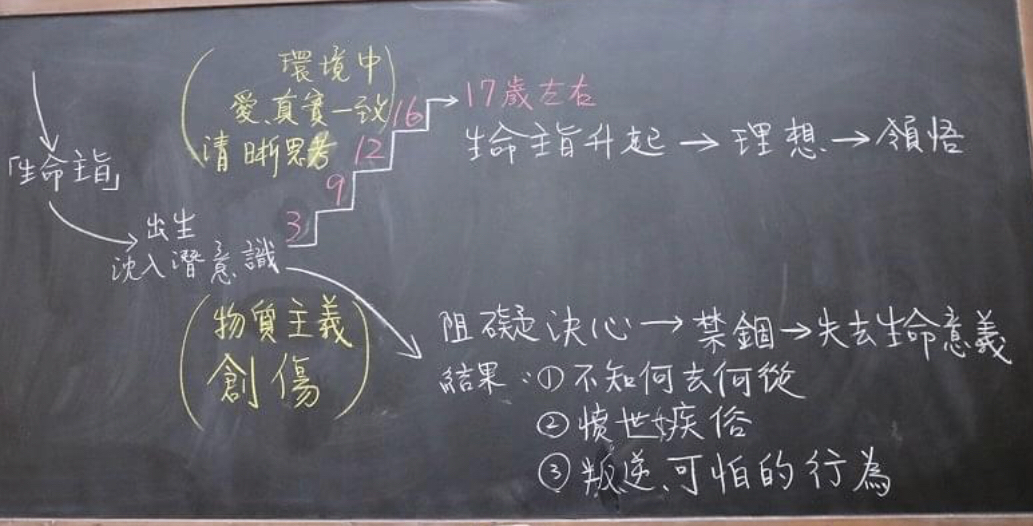 「生命主旨」
出生
沈入潛意識
(環境中
愛、真實一致
清晰思考)
3
9
12
16
→17歲左右
生命主旨升起→理想→領悟
(物質主義
創傷)
阻礙決心→禁錮→失去生命意義
結果:①不知何去何從
②憤世嫉俗
③叛逆、可怕的行為